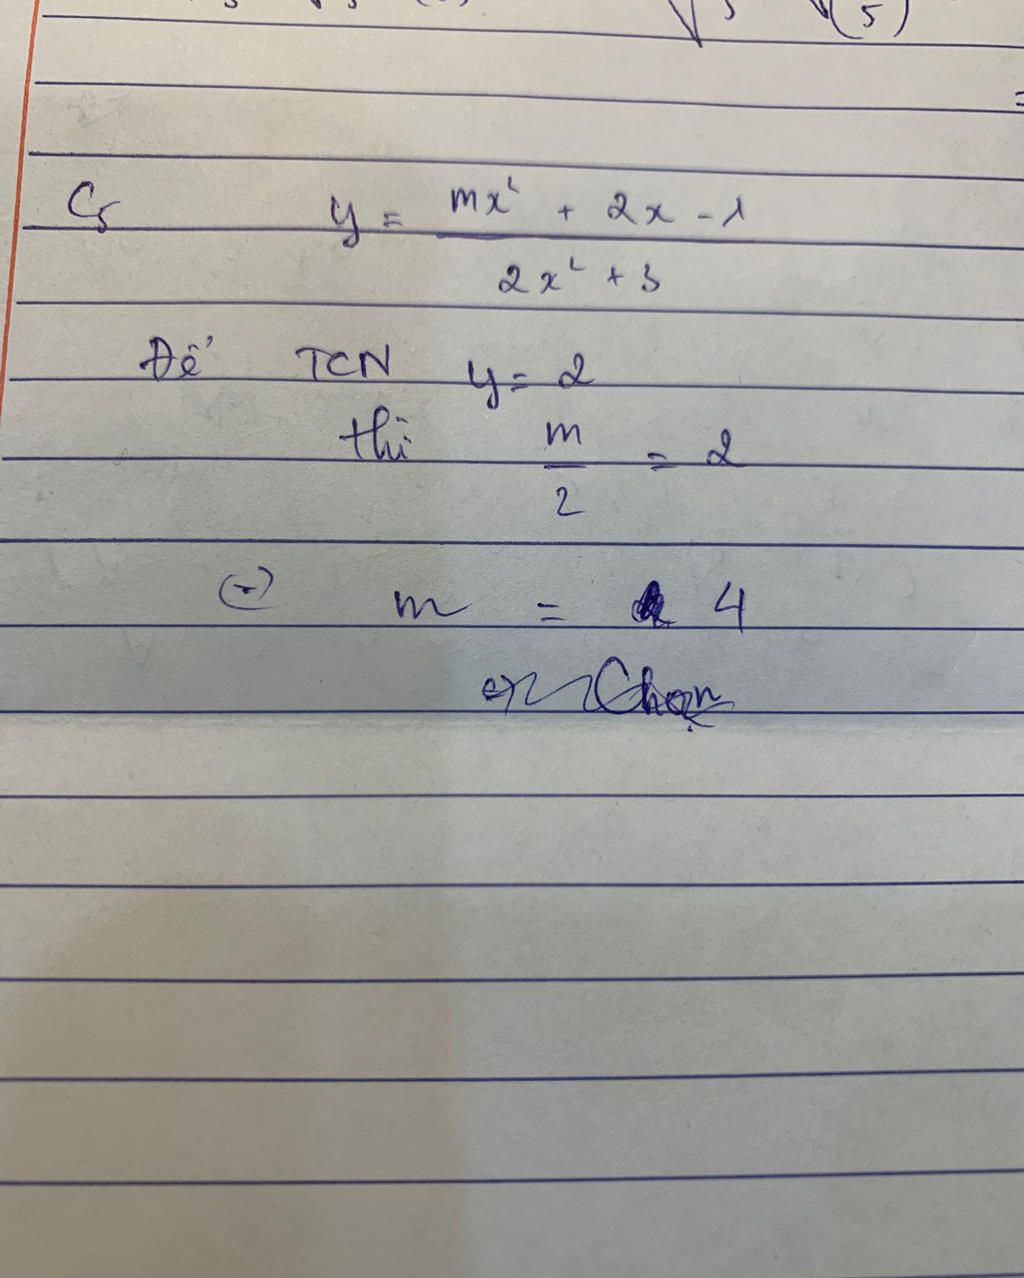 C5 y = mx² + 2x - 1
2x² + 3
Để TCN y = 2
thì m/2 = 2
(=) m = 4
Chọn